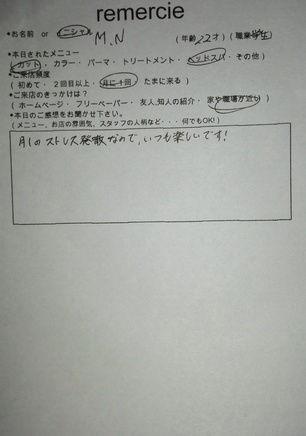 remercie
*お名前 or イニシャル M.N (年齢 22才) (職業 学生)
*本日されたメニュー
(カット ・ カラー ・ パーマ ・ トリートメント ・ ヘッドスパ ・ その他 )
*ご来店頻度
( 初めて ・ 2回目以上 ・ 月に1回 たまに来る )
*ご来店のきっかけは?
( ホームページ ・ フリーペーパー ・ 友人、知人の紹介 ・ 家や職場が近い )
*本日のご感想をお聞かせ下さい。
( メニュー、お店の雰囲気、スタッフの人柄など・・・何でもOK! )
月1のストレス発散なので、いつも楽しいです!